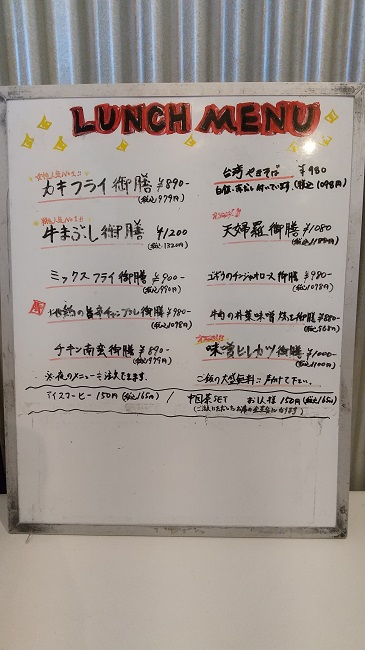 LUNCH MENU
カキフライ御膳 ¥890-
(税込979円)
牛まぶし御膳 ¥1200
(税込1320円)
ミックスフライ御膳 ¥900-
(税込990円)
旨辛チャンプルし御膳 ¥980-
(税込1078円)
チキン南蛮御膳 ¥890-
(税込979円)
※夜のメニューもご注文できます。
台湾やきそば ¥980
付いています。(税込1098円)
天婦羅御膳 ¥1080
(税込1188円)
チンジャオロース御膳 ¥980-
(税込1078円)
牛肉の朴葉味噌焼き御膳 ¥880-
(税込968円)
味噌ヒレカツ御膳 ¥1000-
(税込1100円)
ご飯の大盛無料!! お声がけ下さい。
アイスコーヒー 150円(税込165円) / 中国茶SET お1人様 150円(税込165円)